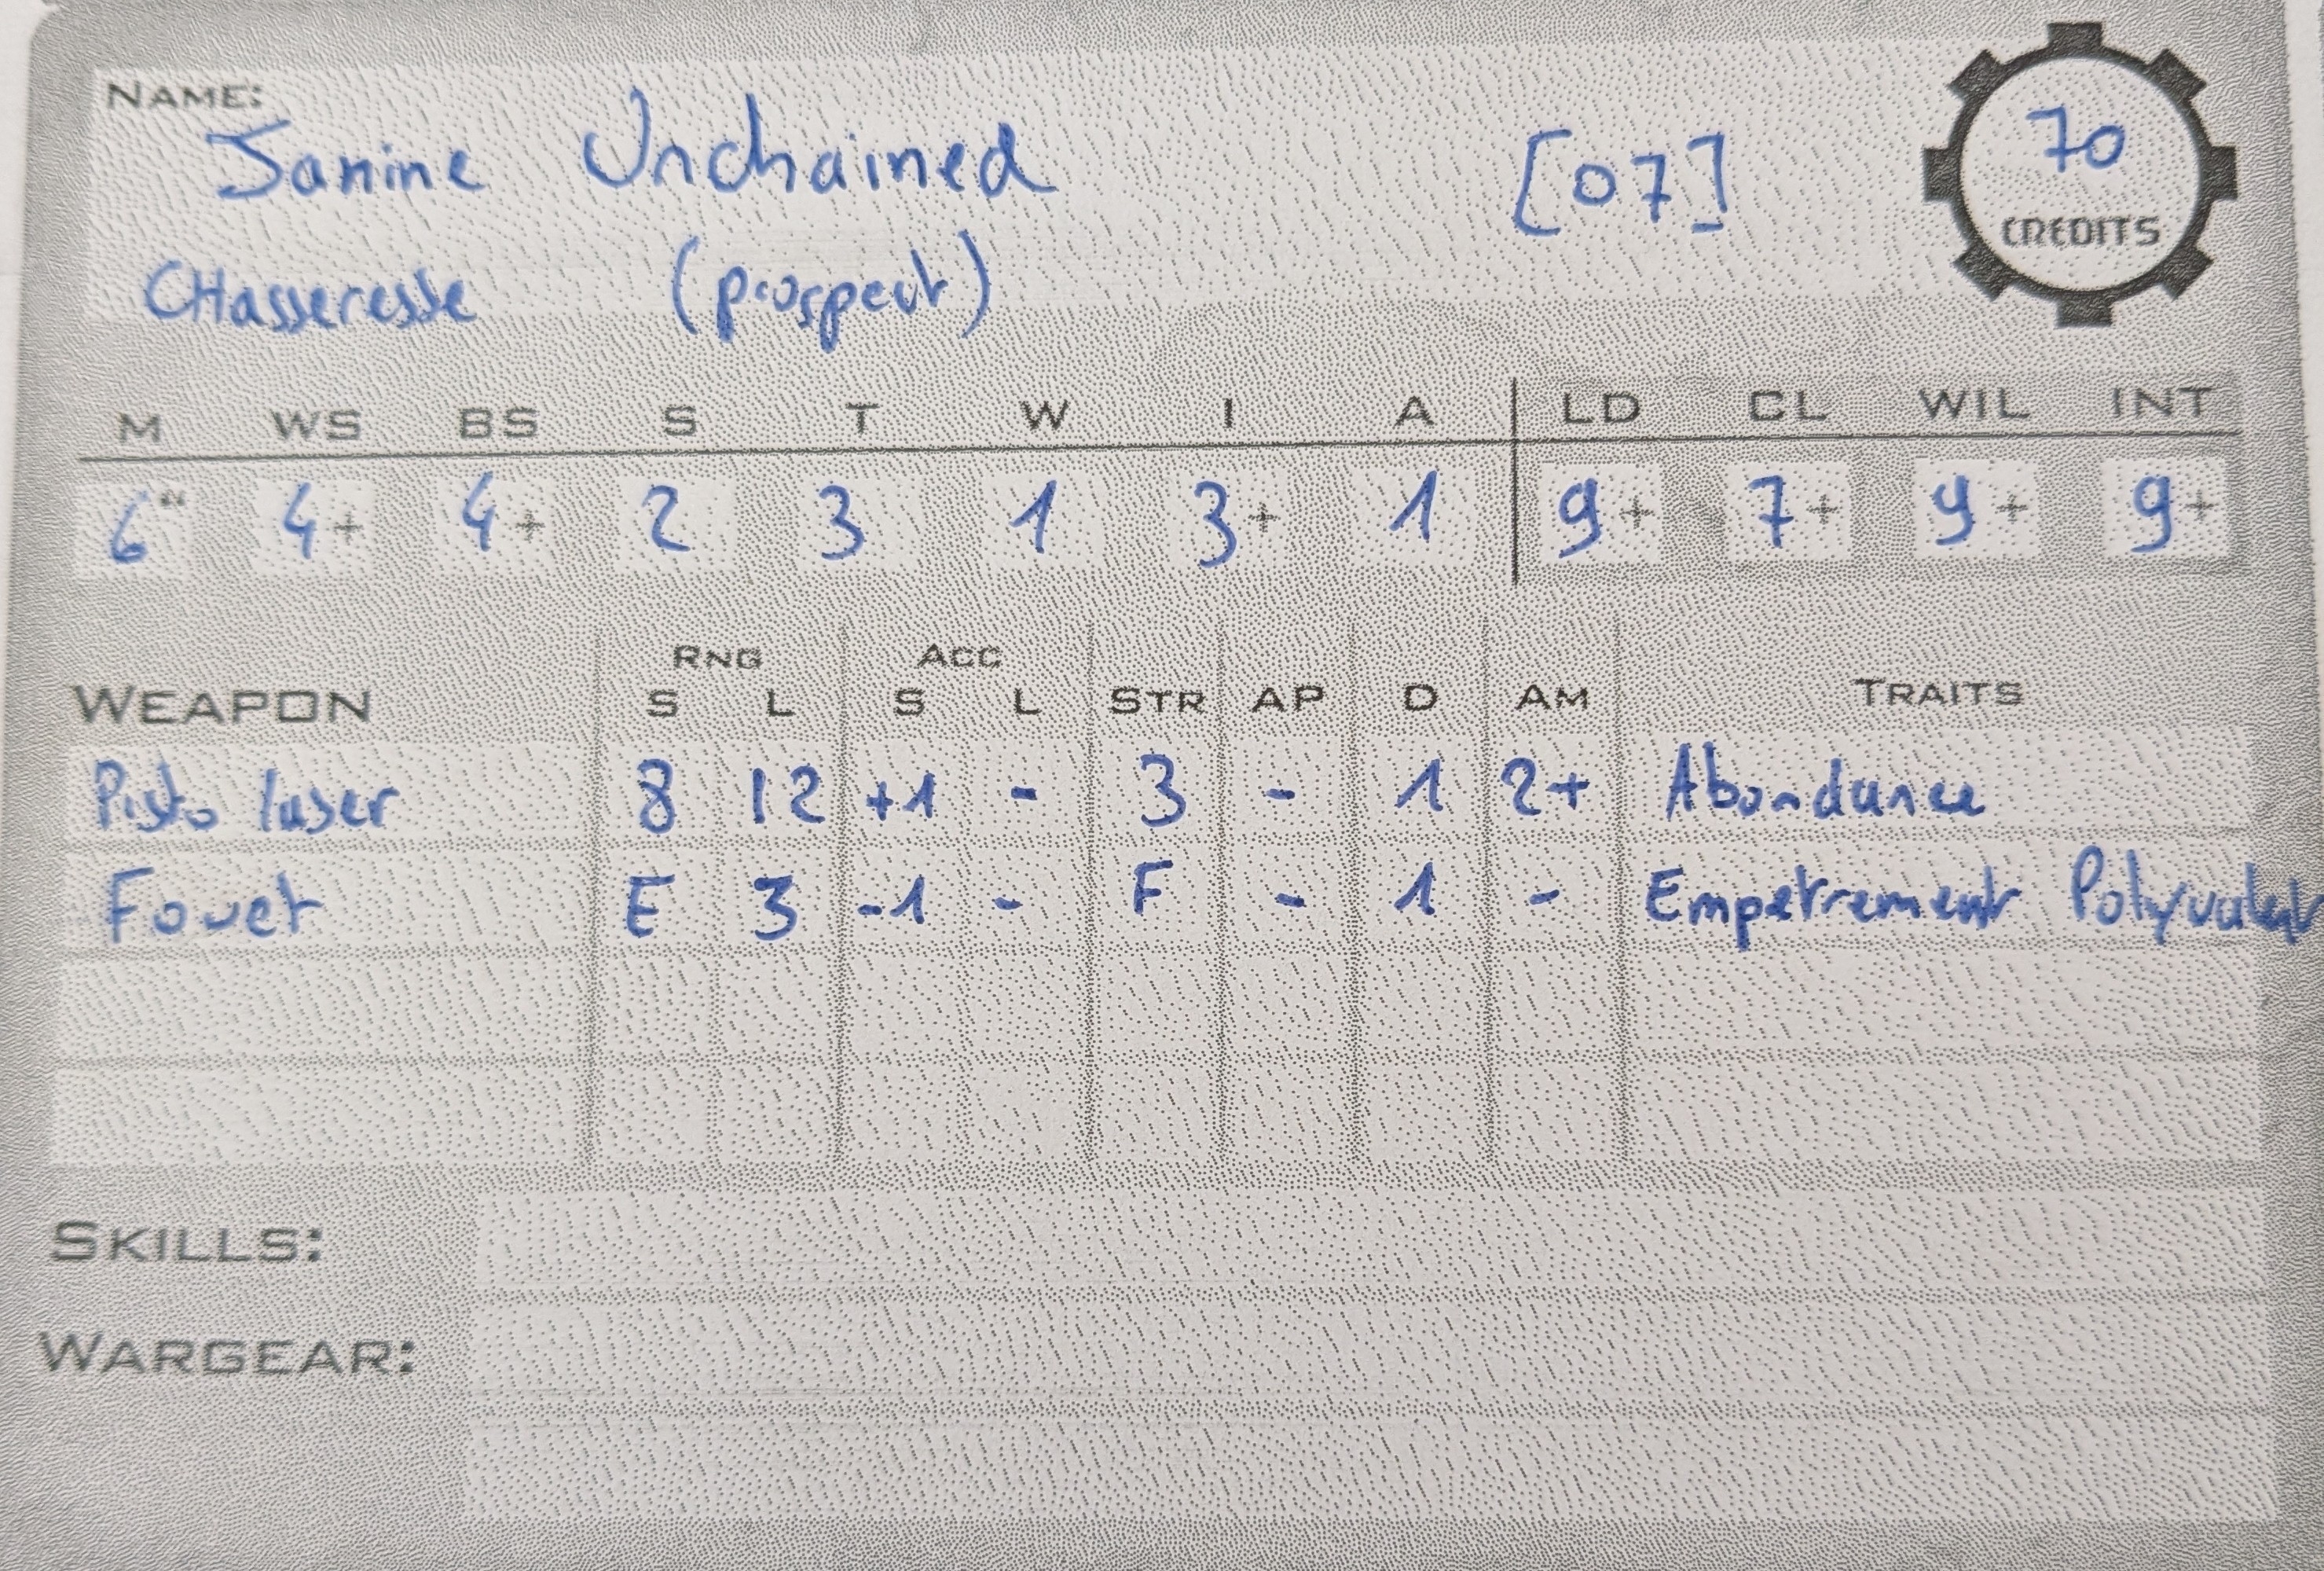 NAME:
Janine Unchained [07] 70
CREDITS
CHasseresse (prospect)
M WS BS S T W I A LD CL WIL INT
6" 4+ 4+ 2 3 1 3+ 1 9+ 7+ 9+ 9+
RNG ACC
WEAPON S L S L STR AP D AM TRAITS
Pisto laser 8 12 +1 - 3 - 1 2+ Abondance
Fouet E 3 -1 - F - 1 - Empetrement Polyvalent
SKILLS:
WARGEAR: